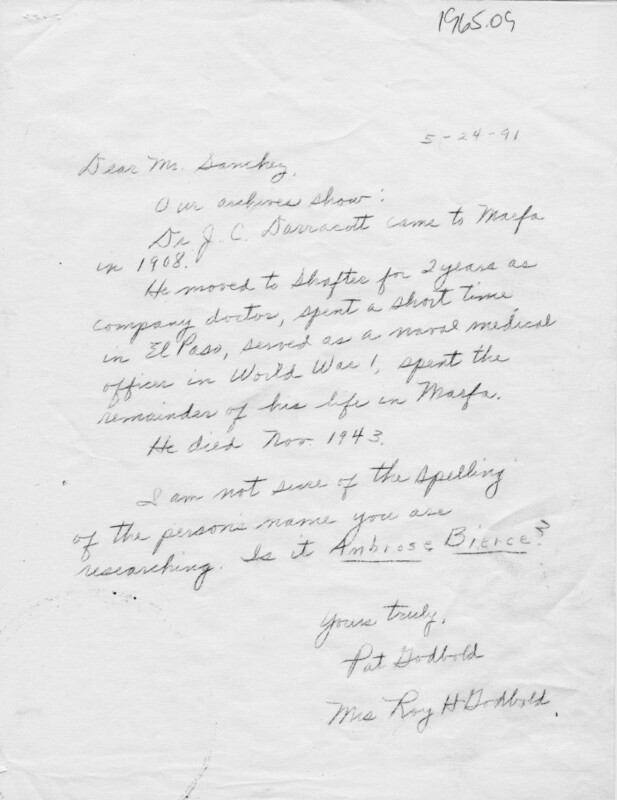 1965.09
5-24-91
Dear Mr. Sanchez,
Our archives show:
Dr. J. C. Darracott came to Marfa
in 1908.
He moved to Shafter for 2 years as
company doctor, spent a short time
in El Paso, served as a naval medical
officer in World War 1, spent the
remainder of his life in Marfa.
He died Nov. 1943.
I am not sure of the spelling
of the person's name you are
researching. Is it Ambrose Bierce?
Yours truly,
Pat Godbold
Mrs Roy H Godbold